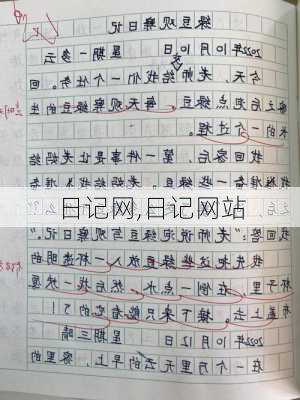 绿豆观察日记
2022年10月10日 星期一 多云
今天，老师给我们一个任务。回
之后泡点绿豆，每天观察绿豆的生
长的一个过程。
我回家后，第一件事是让老妈给
我准备一些绿豆
日记网,日记网站
我回答："老师说泡绿豆写观察日记。"
我先把这些绿豆放入一杯透明的
杯子里，倒一点水，然后找一
布盖上去。接下来只能看它的了！
2022年10月12日 星期三 晴
在一个万里无云的早上，家里的